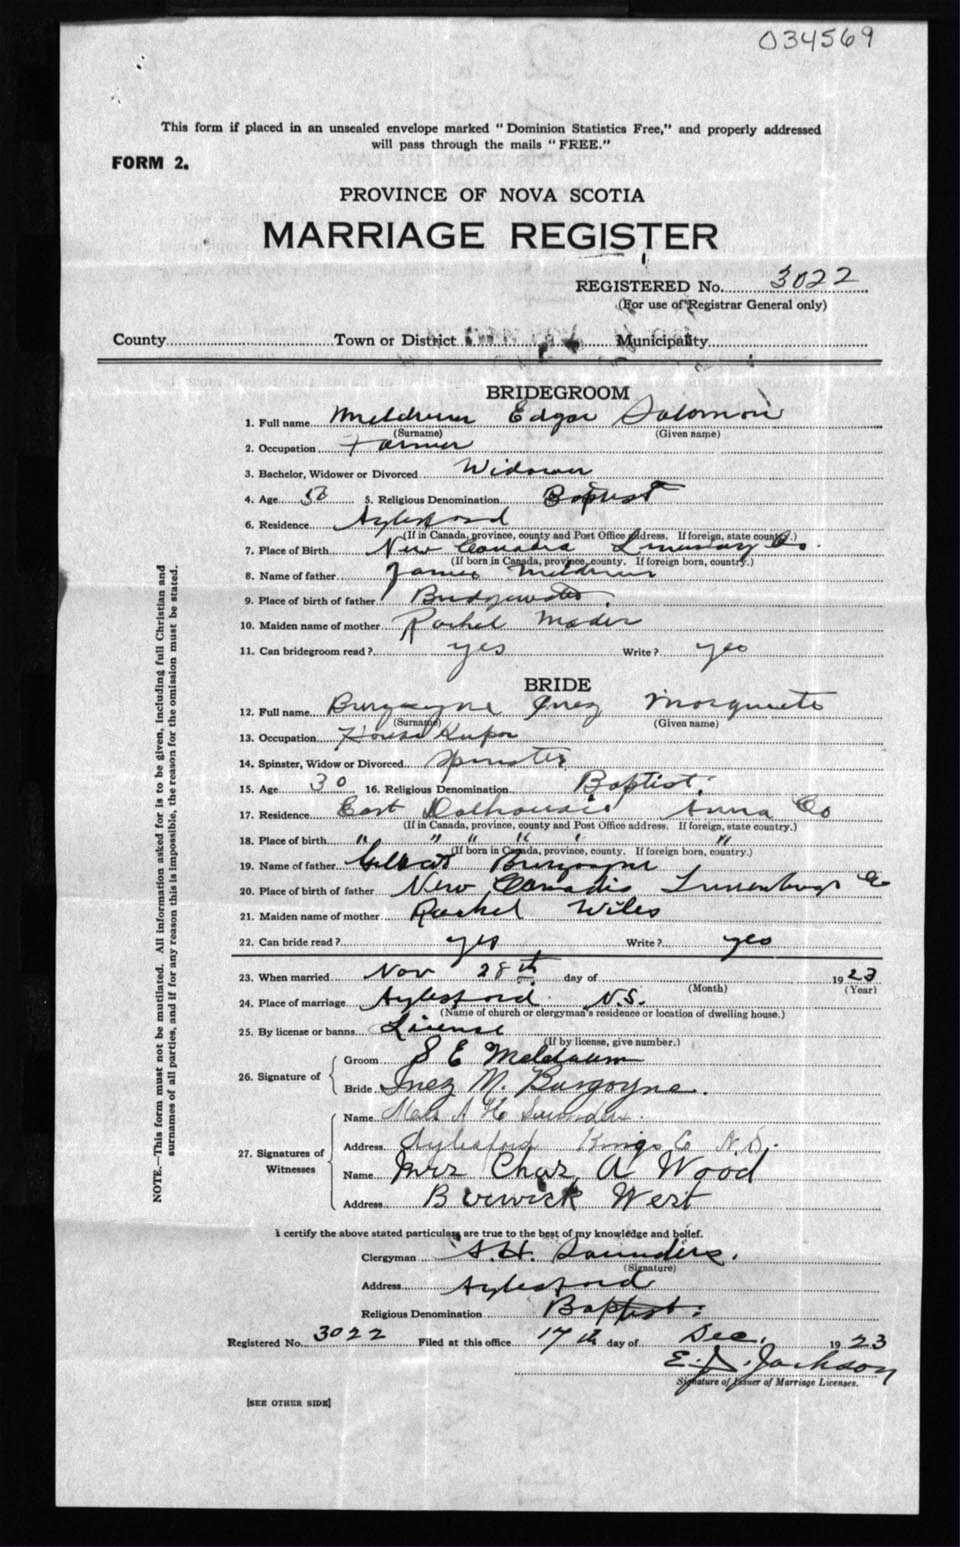 034569
This form if placed in an unsealed envelope marked "Dominion Statistics Free," and properly addressed
will pass through the mails "FREE."
FORM 2.
PROVINCE OF NOVA SCOTIA
MARRIAGE REGISTER
REGISTERED No. 3022
(For use of Registrar General only)
County Town or District Municipality
BRIDEGROOM
1. Full name Meldrum Edgar Solomon
(Surname) (Given name)
2. Occupation Farmer
3. Bachelor, Widower or Divorced Widower
4. Age 5. Religious Denomination Baptist
6. Residence Aylesford
(If in Canada, province, county and Post Office address. If foreign, state country.)
7. Place of Birth New Canada Lunenburg Co.
(If born in Canada, province, county. If foreign born, country.)
8. Name of father James Meldrum
9. Place of birth of father Bridgewater.
10. Maiden name of mother Rachel Mader
11. Can bridegroom read? yes Write? yes
BRIDE
12. Full name Burgoyne Inez
(Surname) (Given name)
13. Occupation House Keeper
14. Spinster, Widow or Divorced Spinster
15. Age 30 16. Religious Denomination Baptist.
17. Residence East Dalhousie Anna Co
(If in Canada, province, county and Post Office address. If foreign, state country.)
18. Place of birth " " " " "
(If born in Canada, province, county. If foreign born, country.)
19. Name of father Burgoyne
20. Place of birth of father New Canada Lunenburg Co
21. Maiden name of mother Rachel Wiles
22. Can bride read? yes Write? yes
23. When married Nov 28th day of 1923
(Month) (Year)
24. Place of marriage Aylesford N.S.
(Name of church or clergyman's residence or location of dwelling house.)
25. By license or banns License
(If by license, give number.)
26. Signature of
Groom S E Meldrum
Bride Inez M. Burgoyne.
27. Signatures of
Witnesses
Name Mrs A H Saunders.
Address Aylesford Kings Co N.S.
Name Mrs Chas A Wood
Address Berwick West
I certify the above stated particulars are true to the best of my knowledge and belief.
Clergyman A.H. Saunders.
(Signature)
Address Aylesford
Religious Denomination Baptist.
Registered No. 3022 Filed at this office 17th day of Dec. 1923
E. J. Jackson
Signature of Issuer of Marriage Licenses.
[SEE OTHER SIDE]
NOTE.—This form must not be mutilated. All information asked for is to be given, including full Christian and
surnames of all parties, and if for any reason this is impossible, the reason for the omission must be stated.